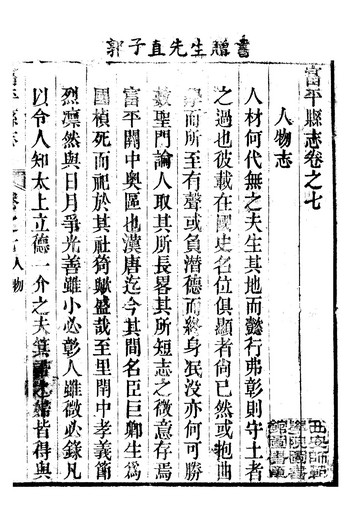 郭子直先生贈書
富平縣志卷之七
人物志
人材何代無之夫生其地而懿行弗彰則守土者
之過也彼載在國史名位俱顯者尚已然或抱曲
學而所至有聲或負潛德而終身泯没亦何可勝
數聖門論人取其所長畧其所短志之微意存焉
富平關中奥區也漢唐迄今其間名臣巨卿生爲
國楨死而祀於其社猗歟盛哉至里閈中孝義節
烈凛然與日月爭光善雖小必彰人雖微必錄凡
以令人知太上立德一介之夫 之 皆得與
富平縣志 卷之七人物
西安師範
學院圖書
館圖書章